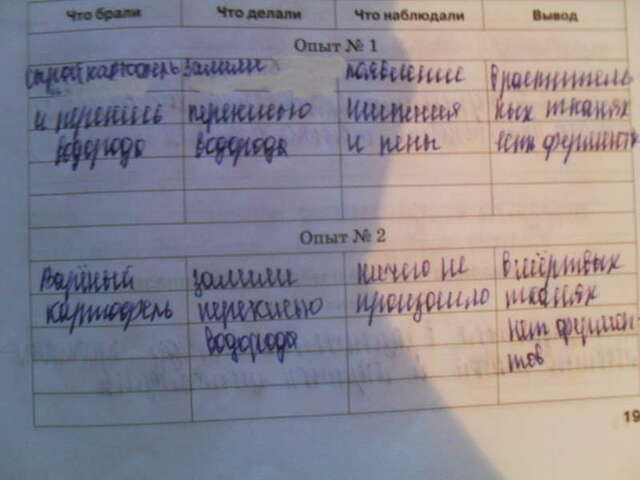 Что брали Что делали Что наблюдали Вывод
Опыт № 1
сырой картофель залили появление в раститель
и перекись перекисью шипения ных тканях
водорода водорода и пены есть ферменты
Опыт № 2
Варёный залили ничего не в мёртвых
картофель перекисью произошло тканях
водорода нет фермен-
тов
19